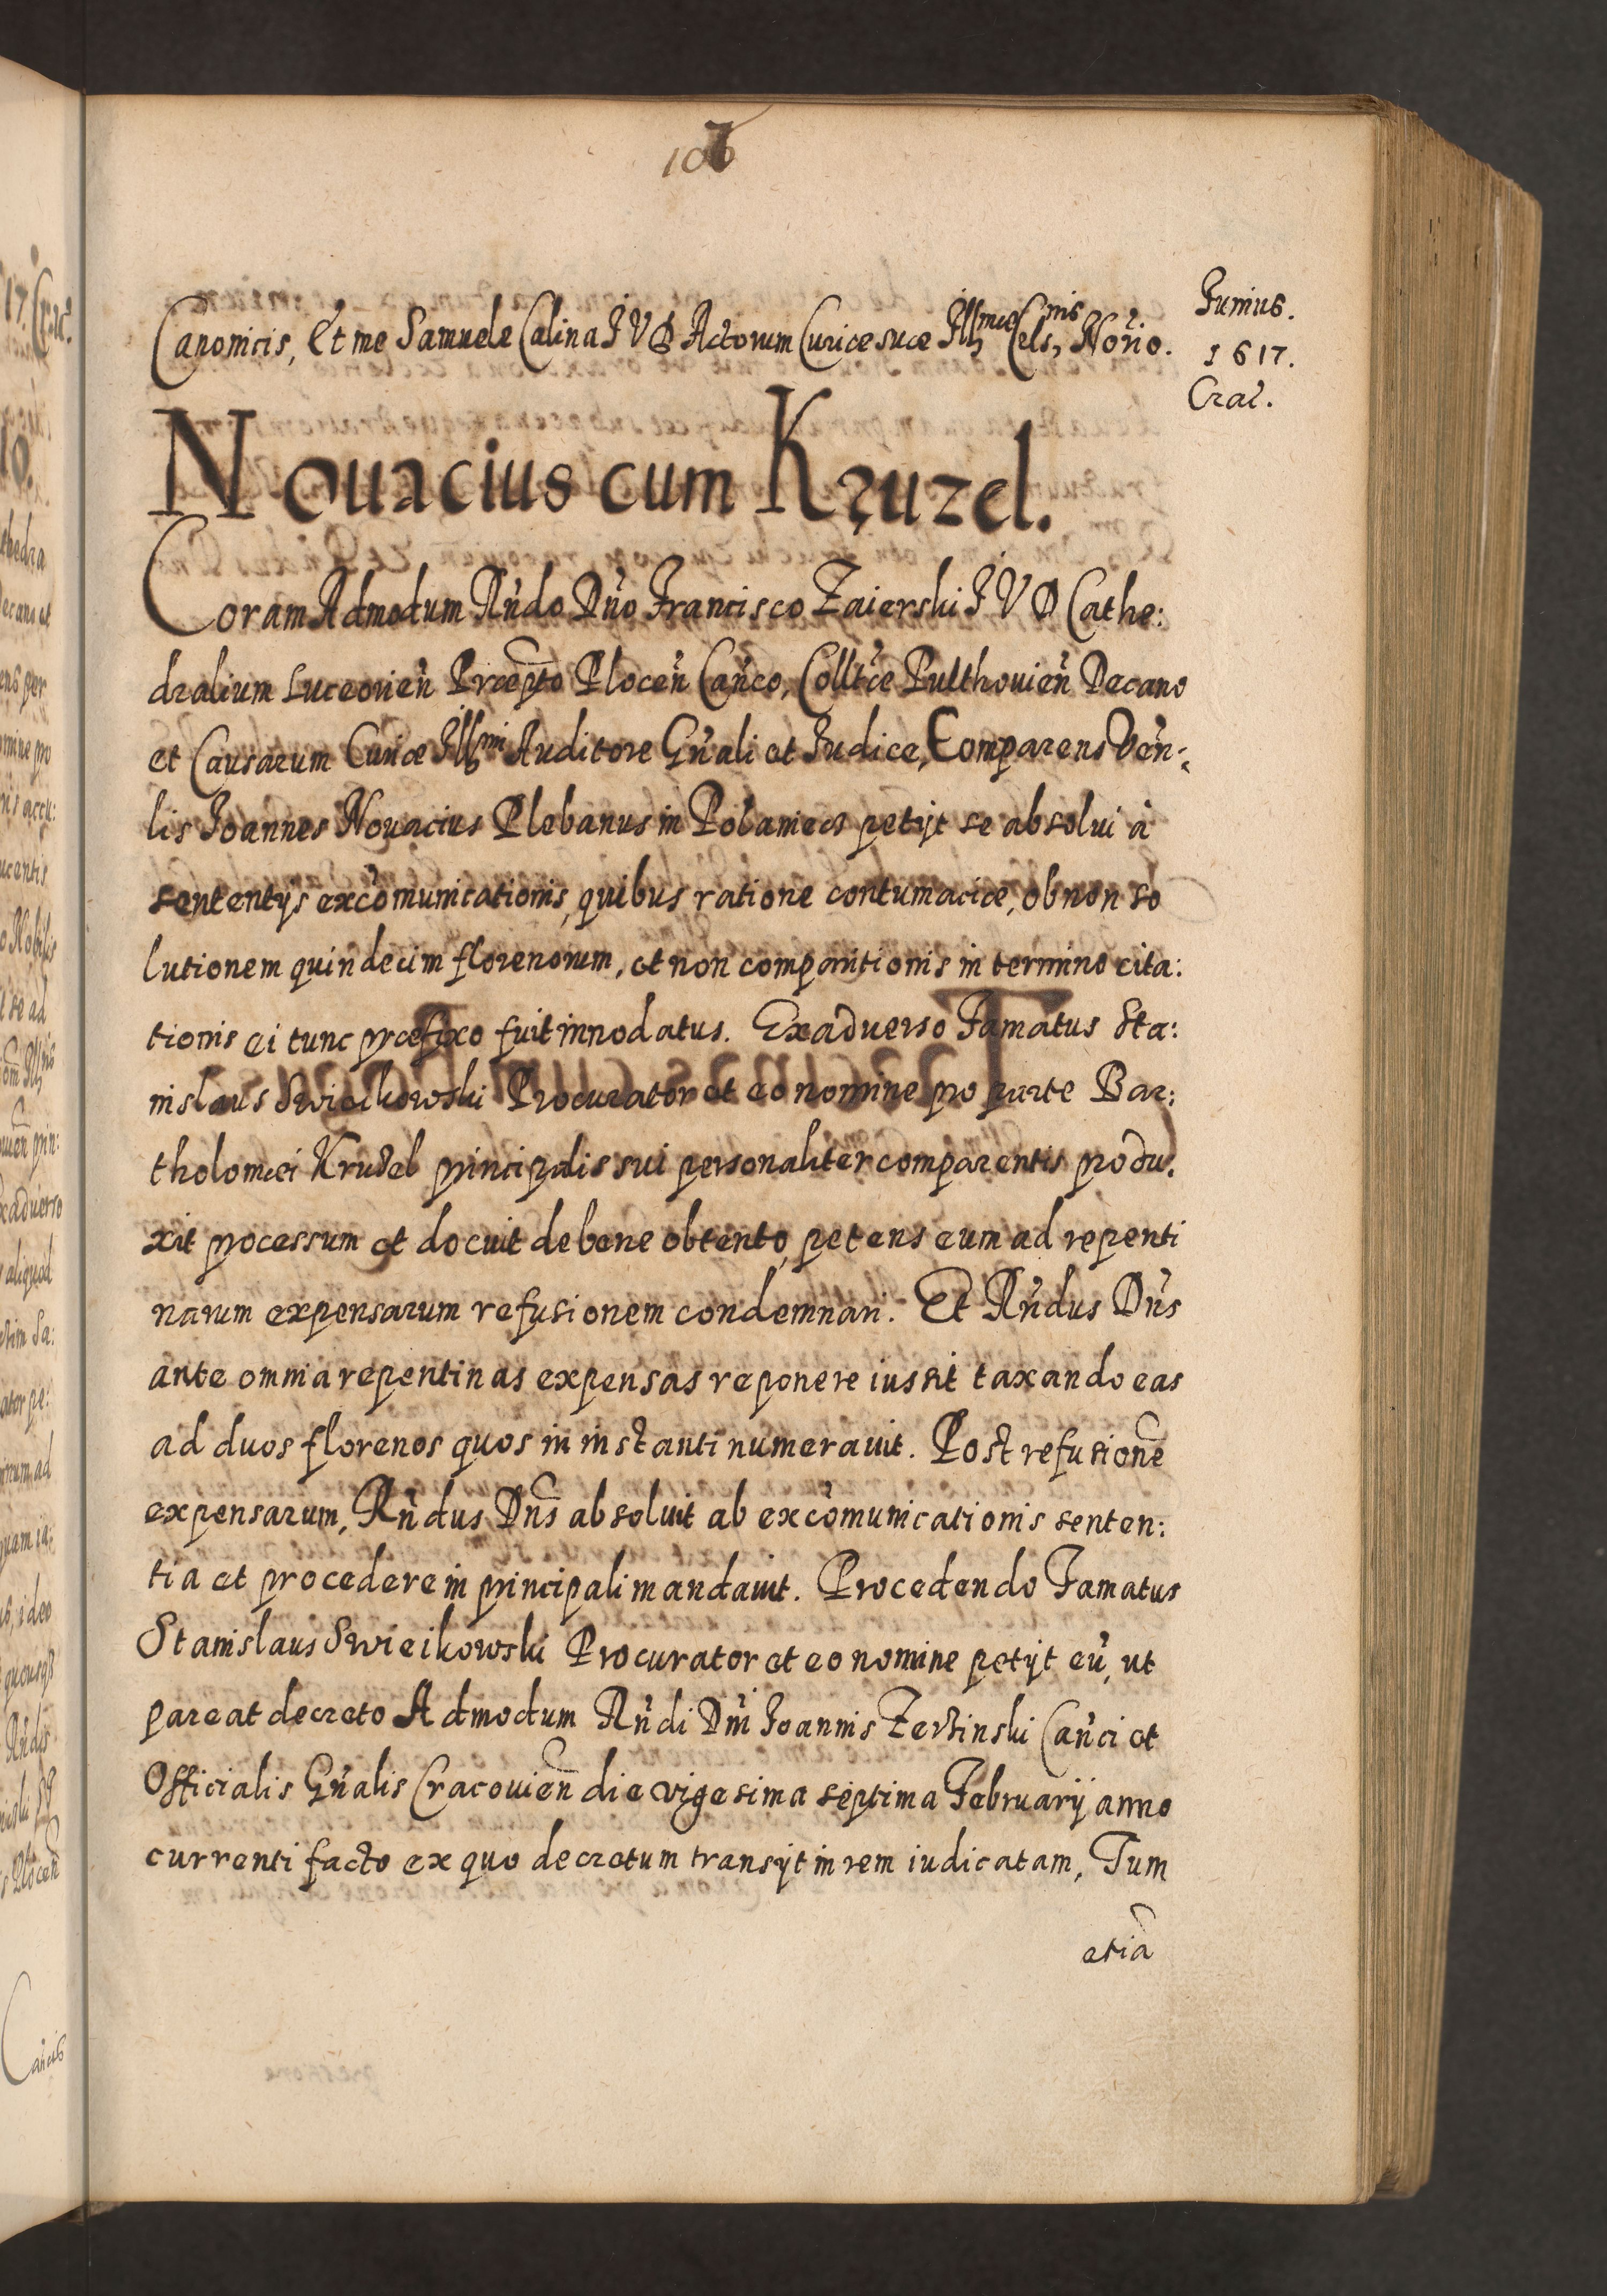 Junius.
1617.
Crac.
Canonicis, Et me Samuele Calina JVD Actorum Curiæ suæ Illmæ Celsnis Norio.
Nouacius cum Kruzel.
Coram Admodum Rndo Dno Francisco Zaierski JVD Cathe:
dralium Luceorien Præpto Plocen Canco, Colltæ Pulthouien Decano
et Causarum Curiæ Illmi Auditore Gnali et Judice, Comparens Ven:
lis Joannes Nouacius Plebanus in Polaniecz petijt se absolui à
sententijs excomunicationis, quibus ratione contumaciæ, ob non so
lutionem quindecim florenorum, et non comparitionis in termino cita:
tionis ei tunc præfixo fuit innodatus. Exaduerso Famatus Sta:
nislaus Swieikowski Procurator et eo nomine pro parte Bar:
tholomæi Kruzel principalis sui personaliter comparentis produ:
xit processum et docuit de bene obtento, petens eum ad repenti
narum expensarum refusionem condemnari. Et Rndus Dns
ante omnia repentinas expensas reponere iussit taxando eas
ad duos florenos quos in instanti numerauit. Post refusione
expensarum, Rndus Dns absoluit ab excomunicationis senten:
tia et procedere in principali mandauit. Procedendo Famatus
Stanislaus Swieikowski Procurator et eo nomine petijt eu, ut
pareat decreto Admodum Rndi Dni Joannis Zerzinski Canci et
Officialis Gnalis Cracouien die vigesima septima Februarij anno
currenti facto ex quo decretum transijt in rem iudicatam, Tum
etia